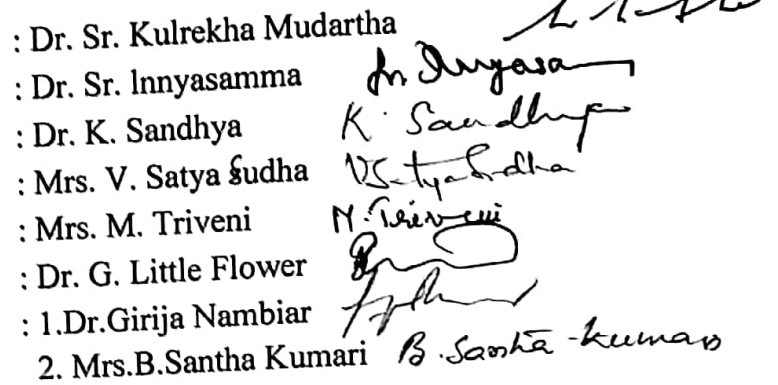 : Dr. Sr. Kulrekha Mudartha
: Dr. Sr. lnnyasamma
: Dr. K. Sandhya K. Sandhya
: Mrs. V. Satya Sudha V Satya Sudha
: Mrs. M. Triveni M. Triveni
: Dr. G. Little Flower
: 1.Dr.Girija Nambiar
2. Mrs.B.Santha Kumari B. Santha-Kumari